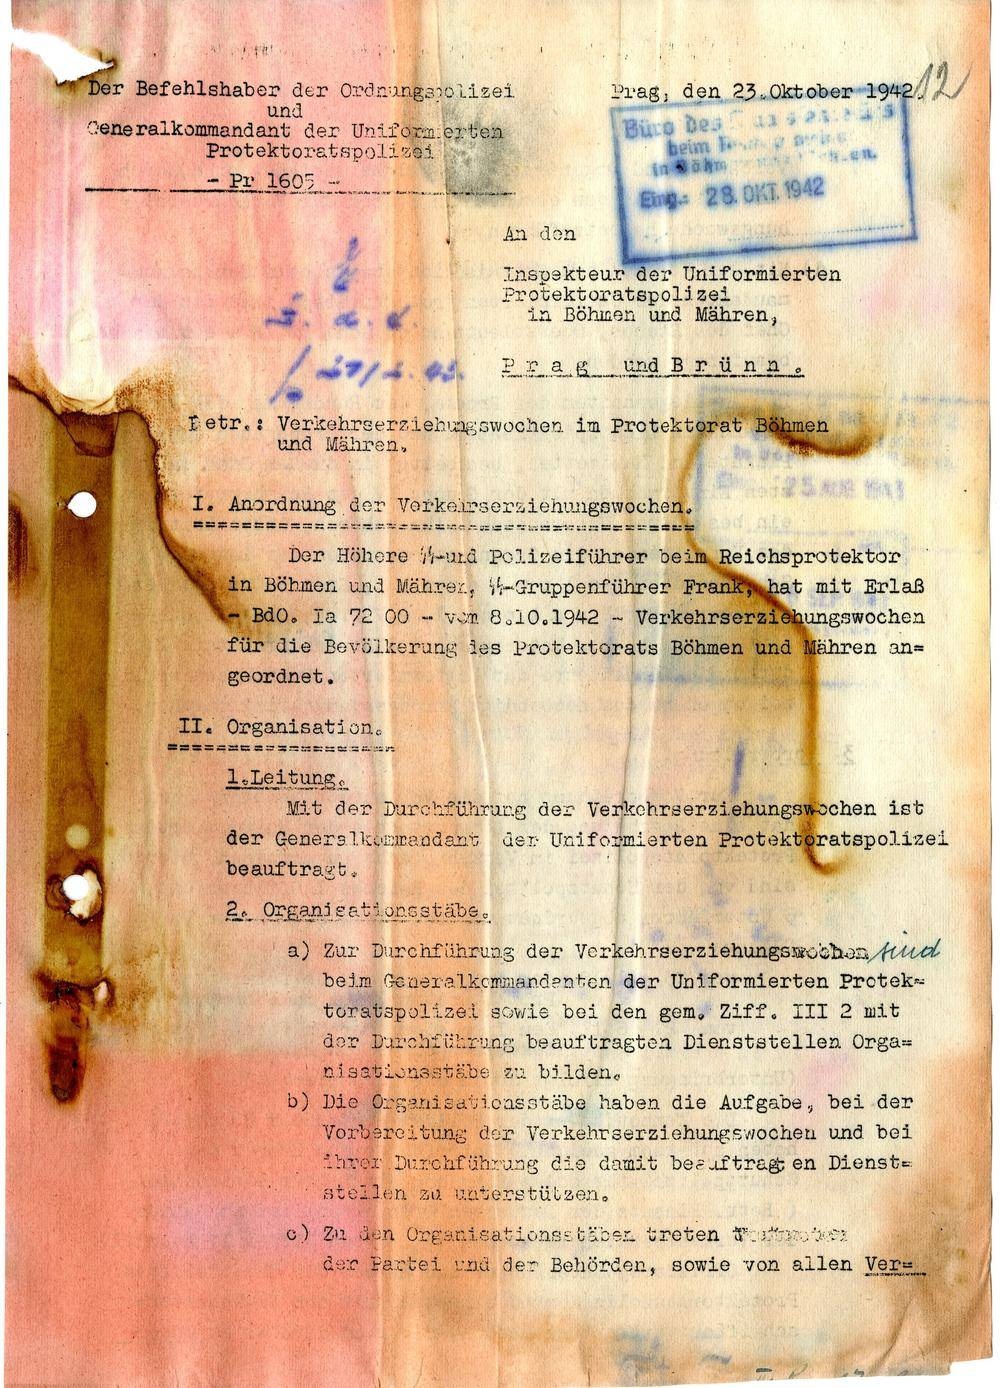 Der Befehlshaber der Ordnungspolizei
und
Generalkommandant der Uniformierten
Protektoratspolizei
- Pr 1605 -
Prag, den 23.Oktober 1942.
12
Büro des
beim
in Böhmen
Eing.: 28. OKT. 1942
An den
Inspekteur der Uniformierten
Protektoratspolizei
in Böhmen und Mähren,
P r a g und B r ü n n .
z. d. A.
Betr.: Verkehrserziehungswochen im Protektorat Böhmen
und Mähren.
I. Anordnung der Verkehrserziehungswochen.
Der Höhere ᛋᛋ-und Polizeiführer beim Reichsprotektor
in Böhmen und Mähren, ᛋᛋ-Gruppenführer Frank, hat mit Erlaß
- BdO. Ia 72 00 - vom 8.10.1942 - Verkehrserziehungswochen
für die Bevölkerung des Protektorats Böhmen und Mähren an=
geordnet.
II. Organisation.
1.Leitung.
Mit der Durchführung der Verkehrserziehungswochen ist
der Generalkommandant der Uniformierten Protektoratspolizei
beauftragt.
2. Organisationsstäbe.
a) Zur Durchführung der Verkehrserziehungswochen sind
beim Generalkommandanten der Uniformierten Protek=
toratspolizei sowie bei den gem. Ziff. III 2 mit
der Durchführung beauftragten Dienststellen Orga=
nisationsstäbe zu bilden.
b) Die Organisationsstäbe haben die Aufgabe, bei der
Vorbereitung der Verkehrserziehungswochen und bei
ihrer Durchführung die damit beauftragten Dienst=
stellen zu unterstützen.
c) Zu den Organisationsstäben treten Vertreter
der Partei und der Behörden, sowie von allen Ver=